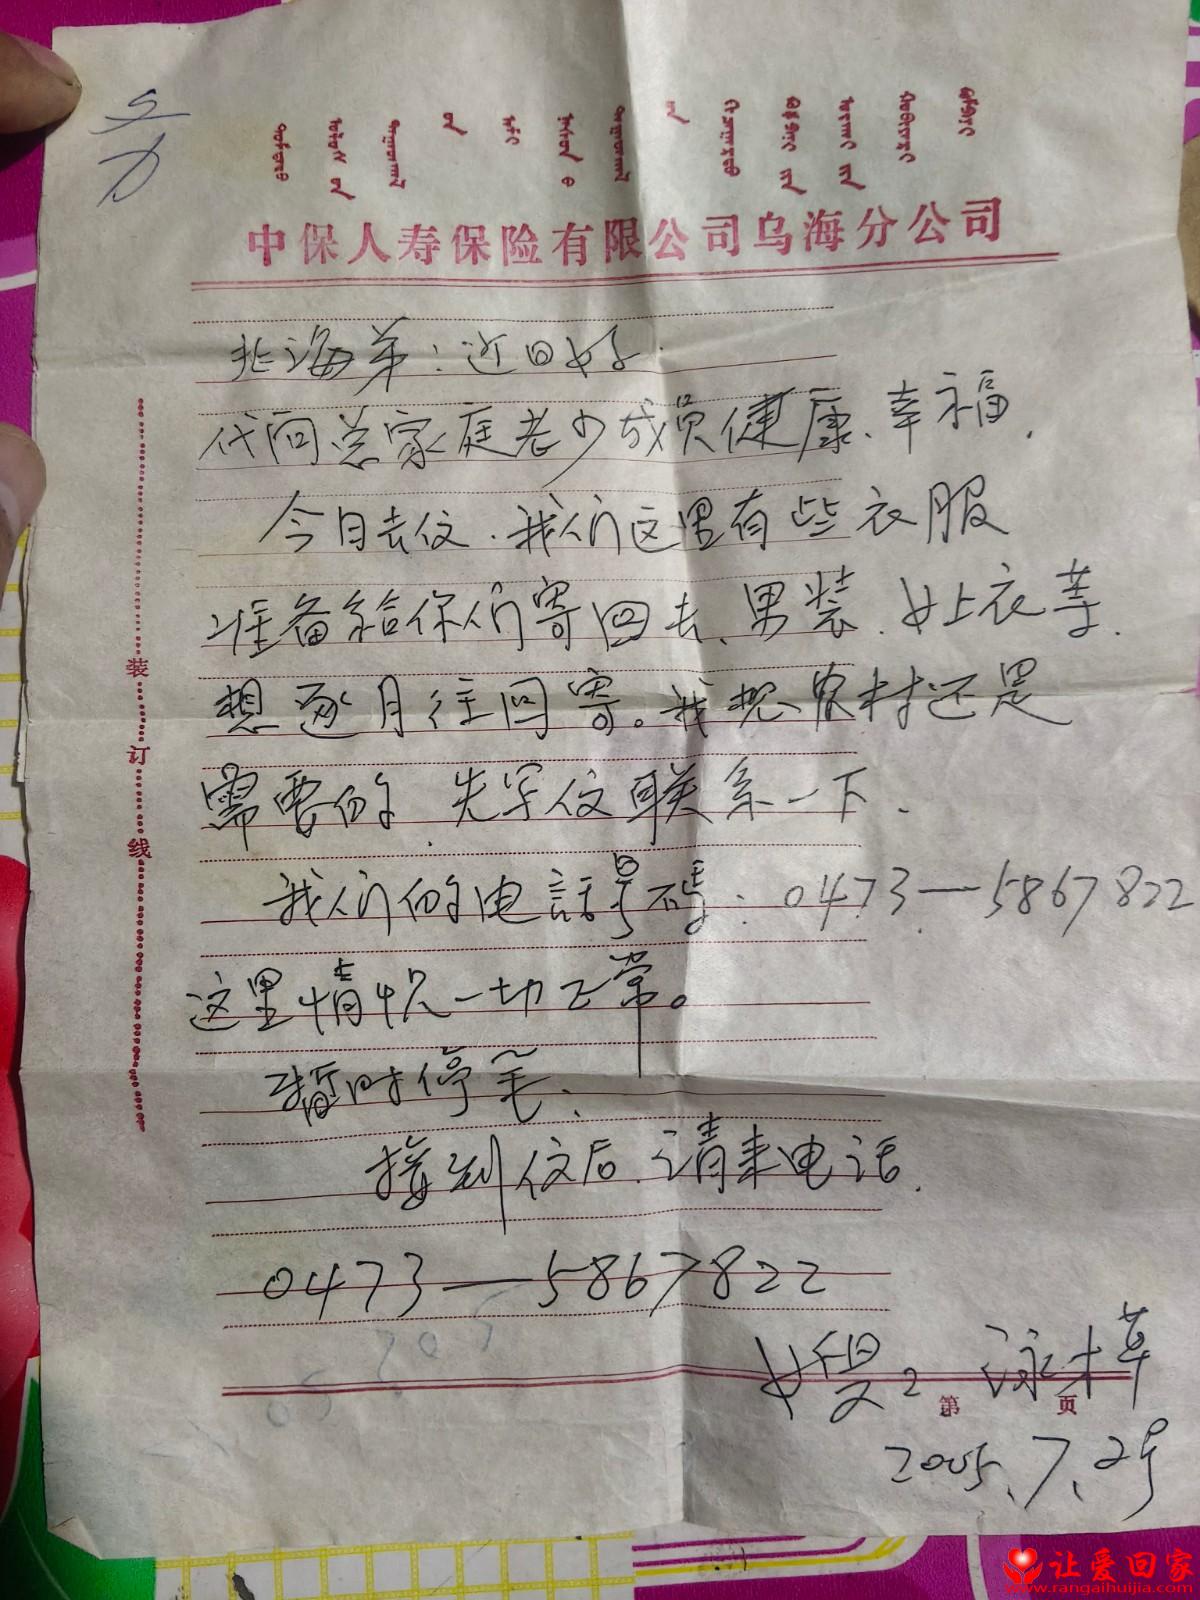 中保人寿保险有限公司乌海分公司
北海弟：近日好.
代问总家庭老少成员健康、幸福.
今日去信.我们这里有些衣服
准备给你们寄回去、男装.女上衣等.
想逐月往回寄。我想农村还是
需要的.先写信联系一下.
我们的电話号码：0473—5867822
这里情况一切正常。
暂时停笔.
接到信后.请来电话.
0473—5867822
第 页
2005.7.2号
装订线
让爱回家
www.rangaihuijia.com